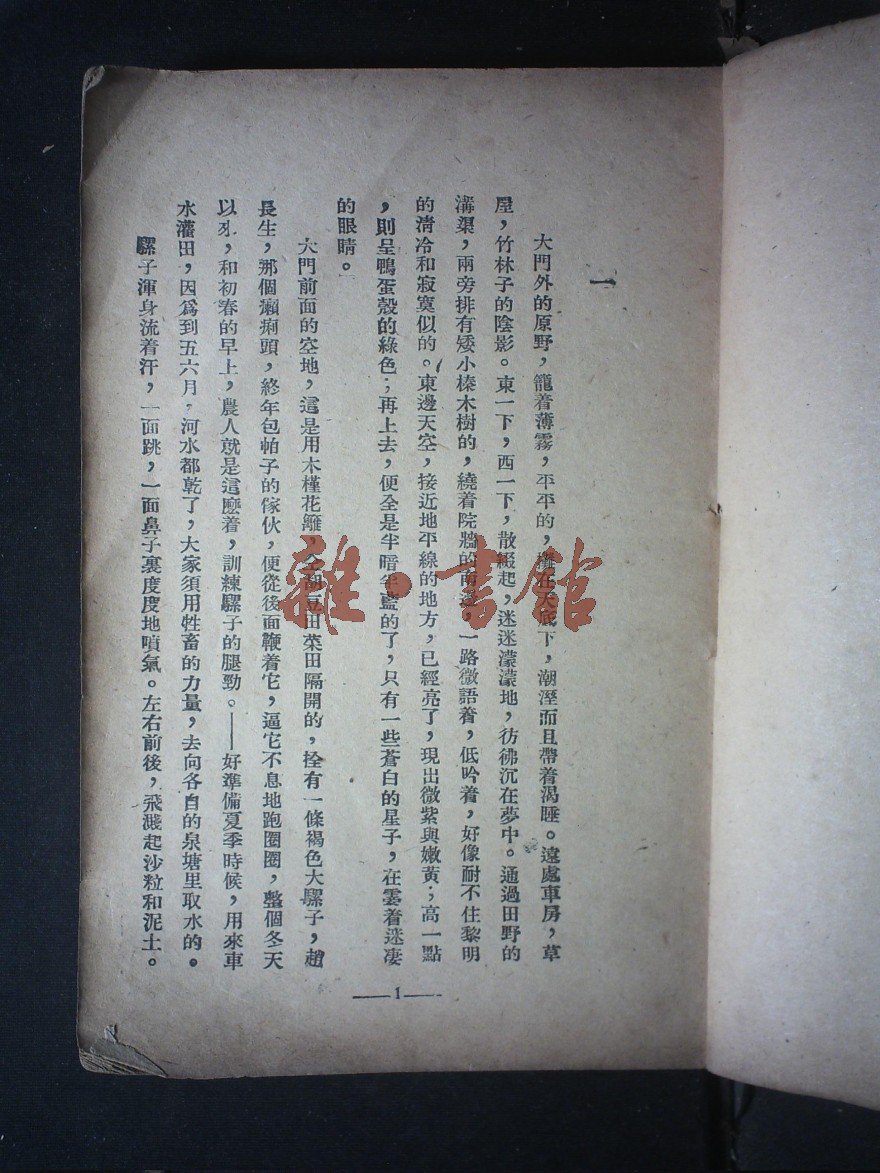 一
大門外的原野，籠着薄霧，平平的，攤在天底下，潮溼而且帶着渴睡。遠處車房，草
屋，竹林子的陰影。東一下，西一下，散綴起，迷迷濛濛地，彷彿沉在夢中。通過田野的
溝渠，兩旁排有矮小榛木樹的，繞着院牆的南邊，一路微語着，低吟着，好像耐不住黎明
的清冷和寂寞似的。東邊天空，接近地平線的地方，已經亮了，現出微紫與嫩黃；高一點
，則呈鴨蛋殼的綠色；再上去，便全是半暗半藍的了，只有一些蒼白的星子，在霎着迷凄
的眼睛。
大門前面的空地，這是用木槿花籬，全胡豆田菜田隔開的，拴有一條褐色大騾子，趙
長生，那個癩痢頭，終年包帕子的傢伙，便從後面鞭着它，逼它不息地跑圈圈，整個冬天
以來，和初春的早上，農人就是這麼着，訓練騾子的腿勁。——好準備夏季時候，用來車
水灌田，因爲到五六月，河水都乾了，大家須用牲畜的力量，去向各自的泉塘里取水的。
騾子渾身流着汗，一面跳，一面鼻子裏度度地噴氣。左右前後，飛濺起沙粒和泥土。
——1——
雜·書館